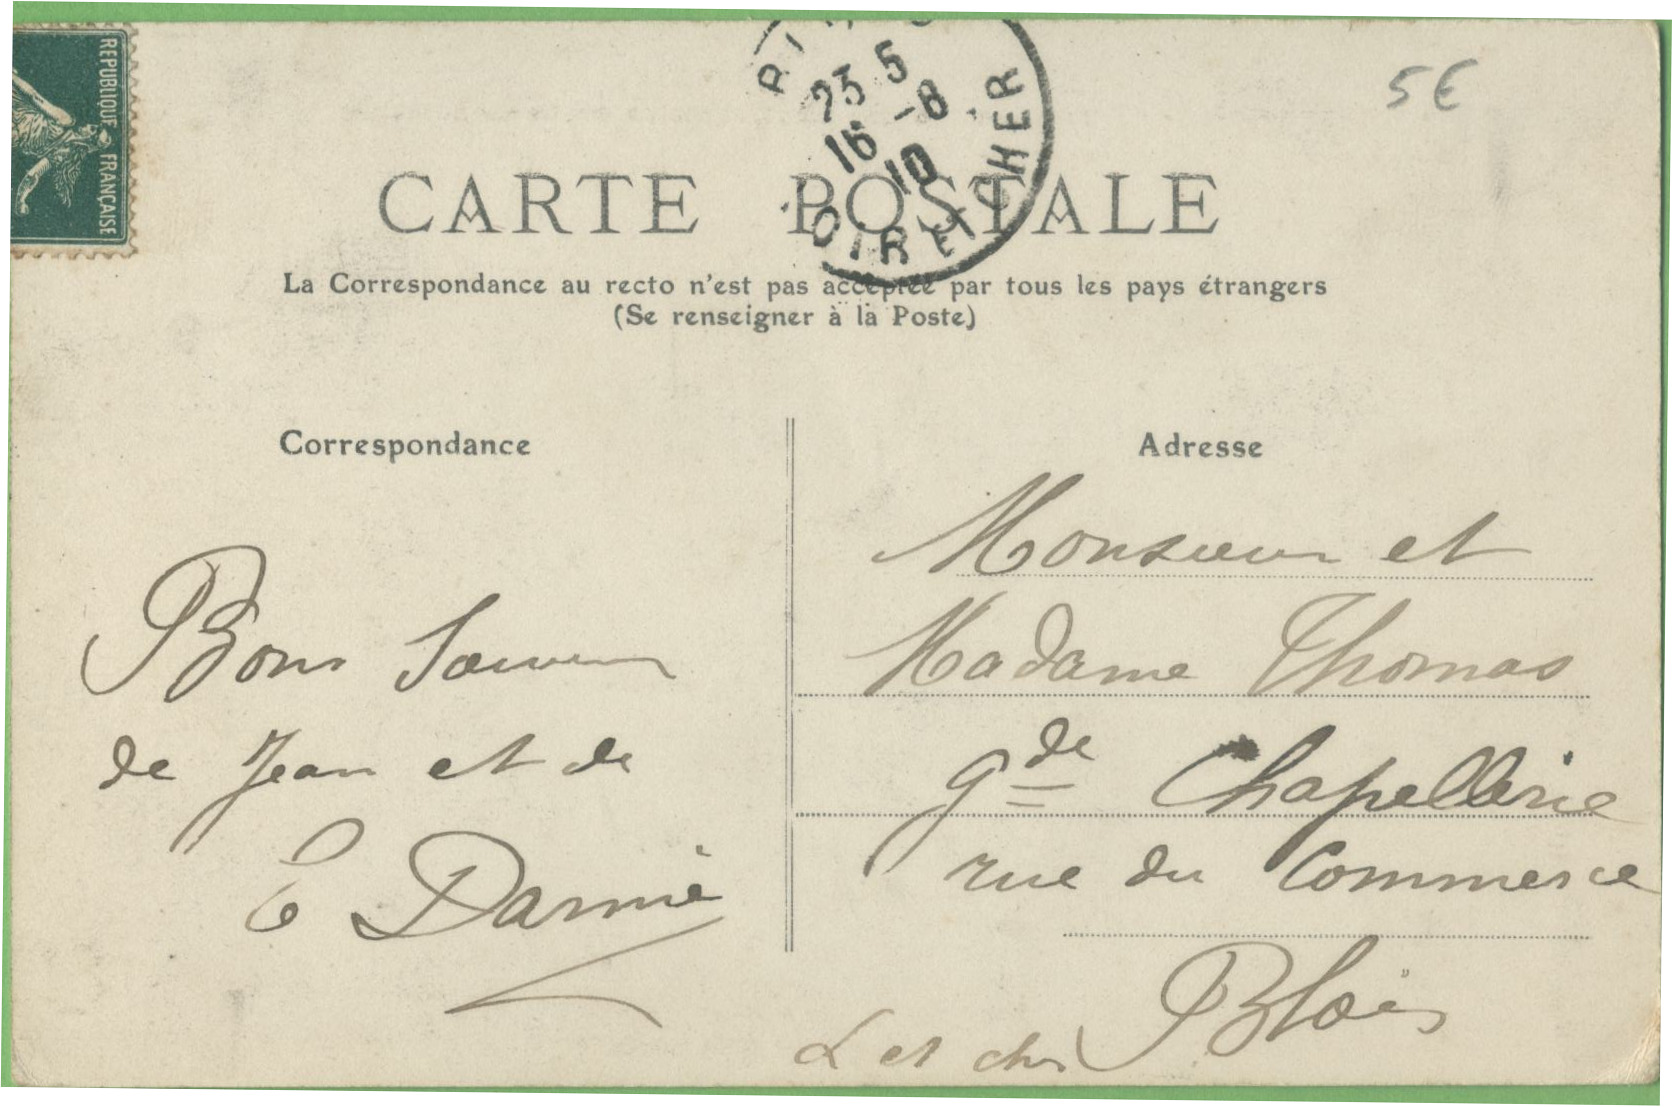 REPUBLIQUE FRANÇAISE
23 5
16 -8
10
LOIR ET CHER
5€
CARTE POSTALE
La Correspondance au recto n'est pas acceptée par tous les pays étrangers
(Se renseigner à la Poste)
Correspondance
Bons Souvenirs
de Jean et de
E
Adresse
Monsieur et
Madame Thomas
gde Chapellerie
rue du Commerce
Blois
L et cher